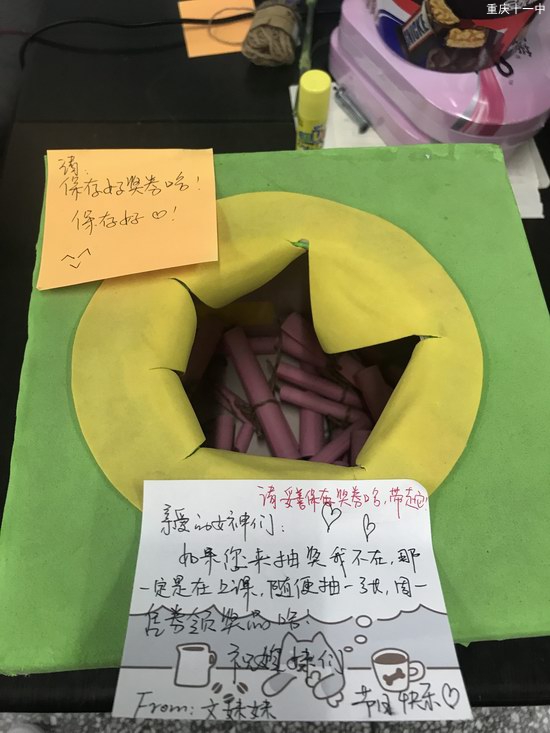 重庆十一中
请:
保存好奖卷哈!
保存好♡!
请妥善保存奖券哈,带走
亲爱的女神们:
如果您来抽奖我不在,那
一定是在上课,随便抽一张,周一
凭券领奖品哈!
祝姐妹们
节日快乐♡
From: 文妹妹